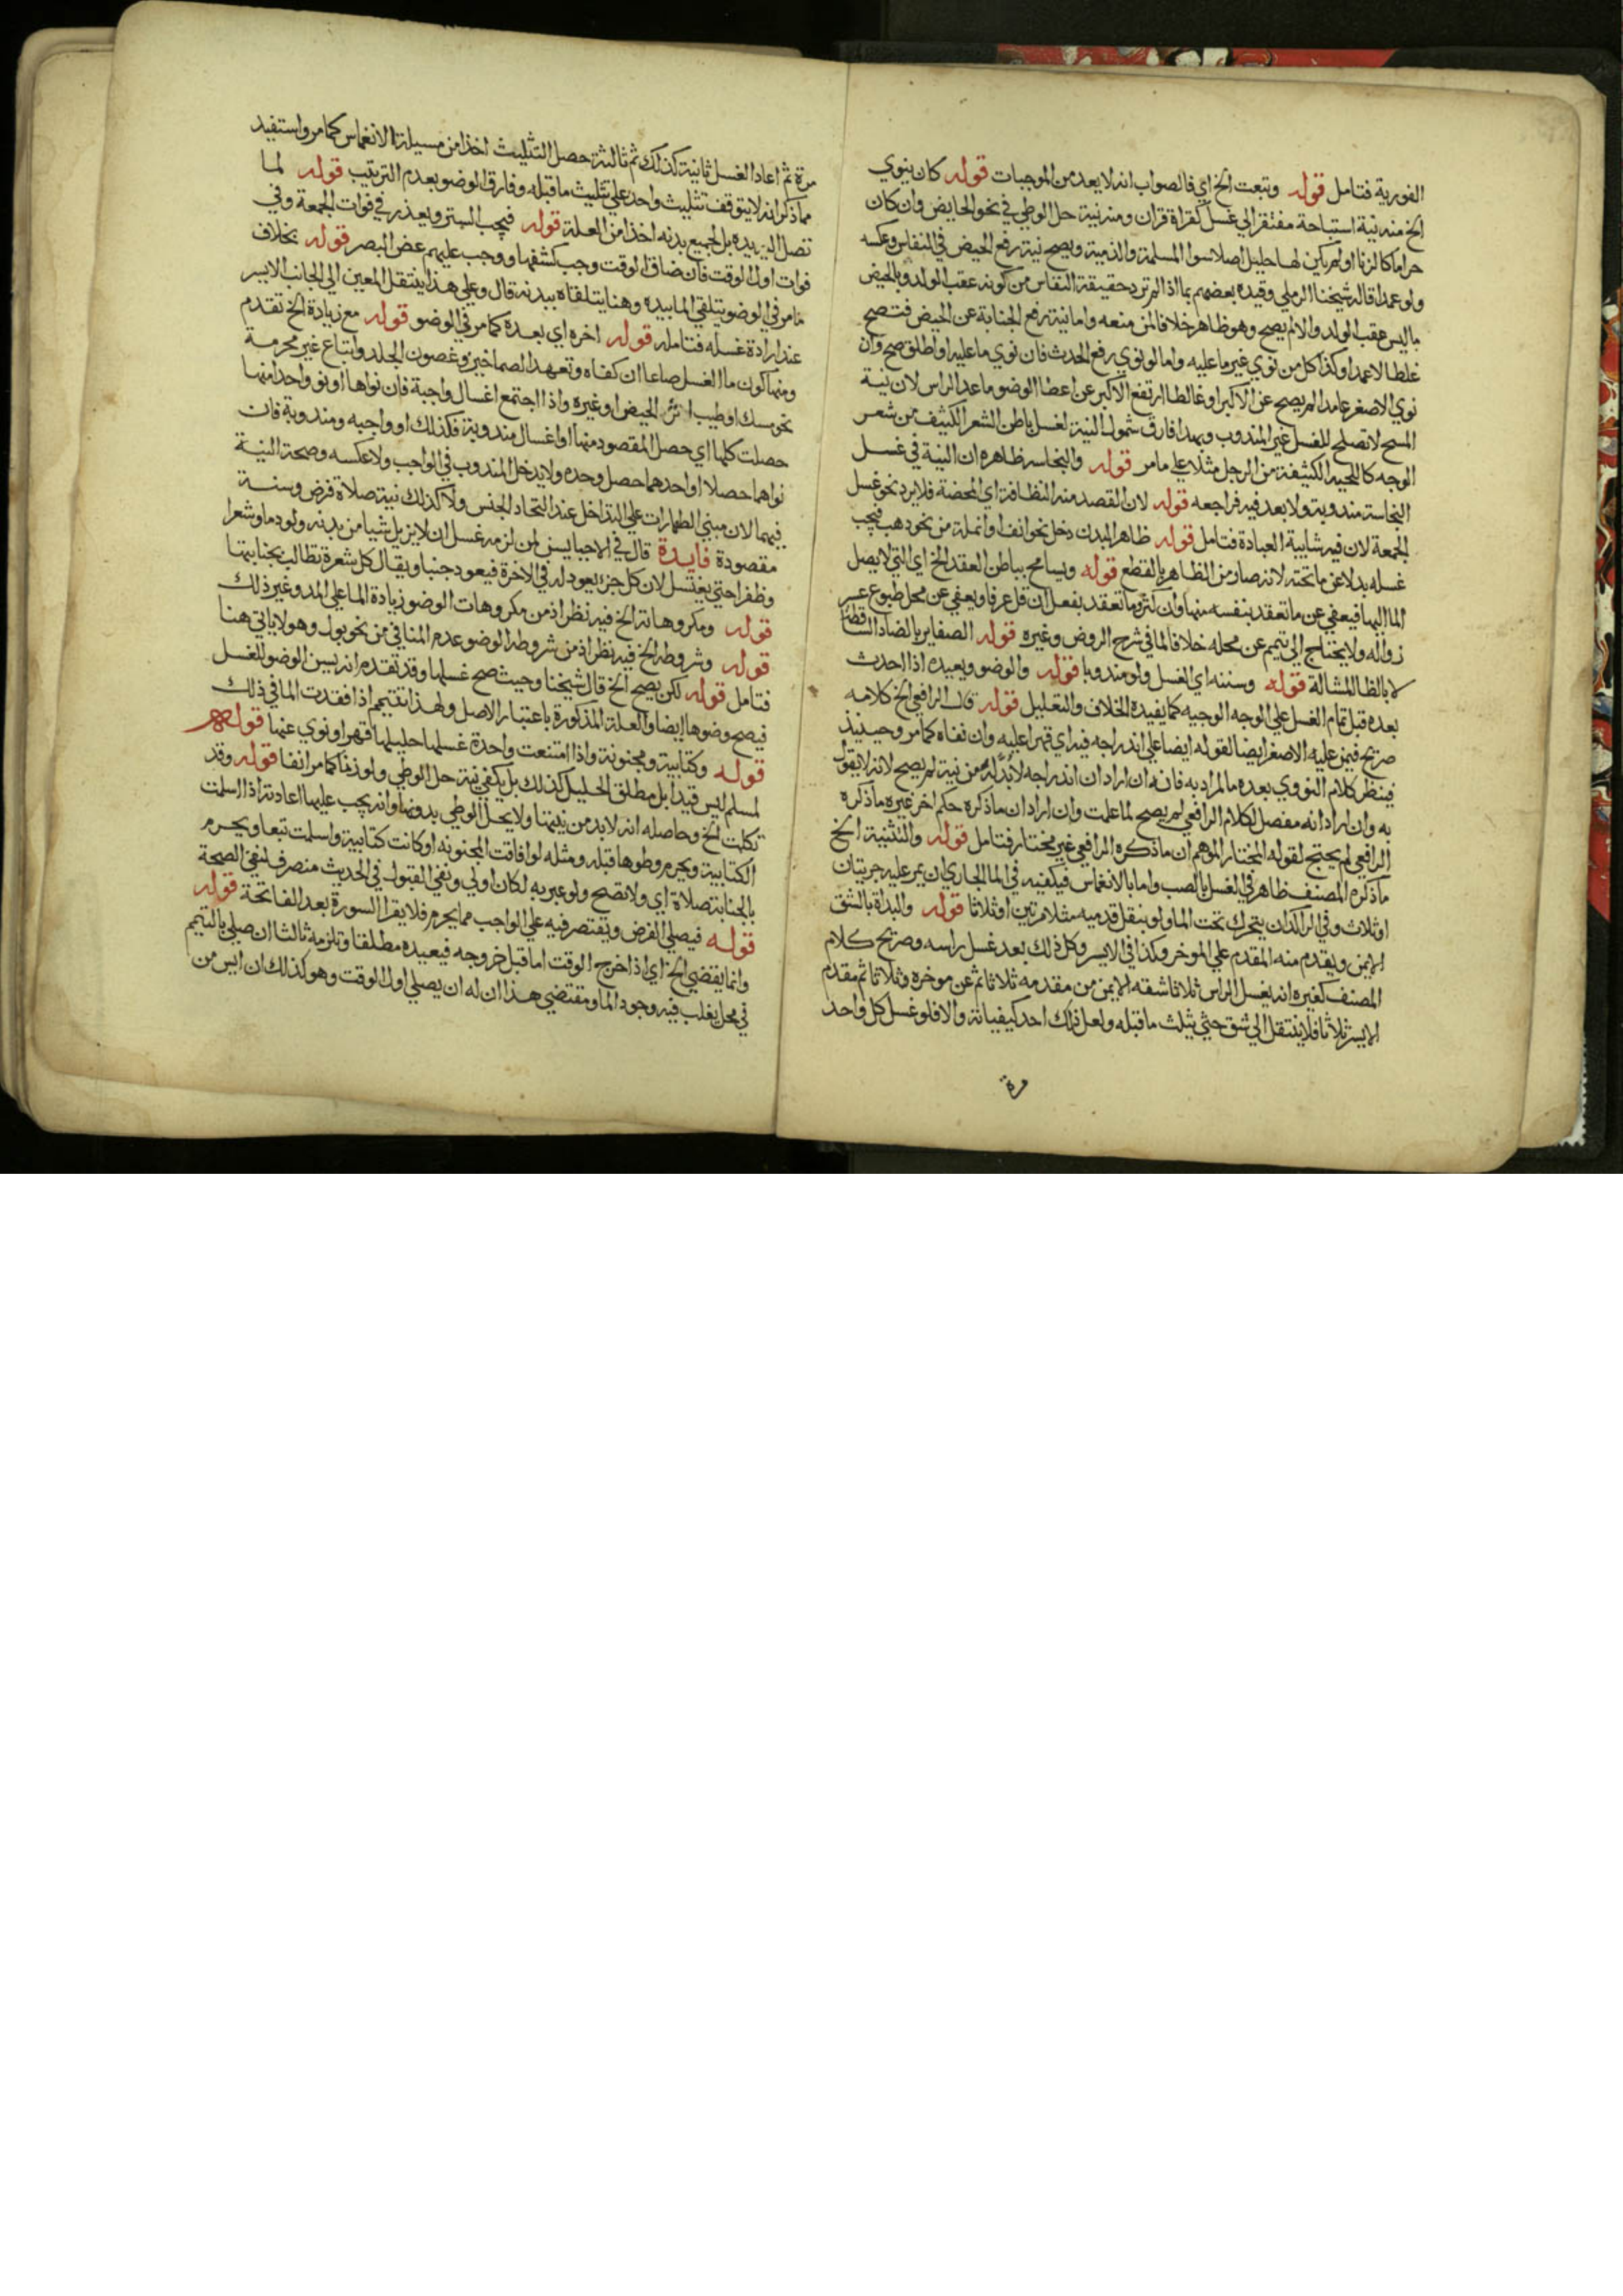 الفورية فتامل قوله وتبعت الخ اي فالصواب انه لا يعد من الموجبات قوله كان ينوي
الخ منه نية استباحة مفتقر الي غسل كقراة قران ومنه نية حل الوطي في نحو الحايض وان كان
حراما كالزنا او لم يكن لها حليل اصلا سوا المسلمة والذمية ويصح نية رفع الحيض في النفاس وعكسه
ولو عمدا قاله شيخنا الرملي وقيده بعضهم بما اذا لم ترد حقيقة النفاس من كونه عقب الولد وبالحيض
ما ليس عقب الولد والا لم يصح وهو ظاهر خلافا لمن منعه واما نية رفع الجنابة عن الحيض فتصح
غلطا لا عمدا وكذا كل من نوي غير ما عليه واما لو نوي رفع الحدث فان نوي ما عليه او اطلق صح وان
نوي الاصغر عامدا لم يصح عن الاكبر او غالطا ارتفع الاكبر عن اعضا الوضو ما عدا الراس لان نية
المسح لا تصلح للغسل غير المندوب وبهذا فارق شمول النية لغسل باطن الشعر الكثيف من شعر
الوجه كاللحية الكثيفة من الرجل مثلا علي ما مر قوله والنجاسة ظاهره ان النية في غسل
النجاسة مندوبة ولا بعد فيه فراجعه قوله لان القصد منه النظافة اي المحضة فلا يرد نحو غسل
الجمعة لان فيه شايبة العبادة فتامل قوله ظاهر البدن دخل نحو انف او انملة من نحو دهب فيجب
غسله بدلا عن ما تحته لانه صار من الظاهر بالقطع قوله ويسامح بباطن العقد الخ اي التي لا يصل
الما اليها فيعفي عن ما تعقد بنفسه منها وان كثر وما تعقد بفعل ان قل عرفا ويعفي عن محل طبوع عسر
زواله ولا يحتاج الي تيمم عن محله خلافا لما في شرح الروض وغيره قوله الضفاير بالضاد الساقطة
لا بالظا المشالة قوله وسننه اي الغسل ولو مندوبا قوله والوضو ويعيده اذا احدث
بعده قبل تمام الغسل علي الوجه الوجيه كما يفيده الخلاف والتعليل قوله قال الرافعي الخ كلامه
صريح فيمن عليه الاصغر ايضا لقوله ايضا علي اندراجه فيه اي قهرا عليه وان نفاه كما مر وحينيذ
فينظر كلام النووي بعده ما المراد به فانه ان اراد ان اندراجه لا بد له من نية لم يصح لانه لا يقول
به وان اراد انه مفصل لكلام الرافعي لم يصح لما علمت وان اراد ان ما ذكره حكم اخر غير ما ذكره
الرافعي لم يحتج لقوله المختار الموهم ان ما ذكره الرافعي غير مختار فتامل قوله والتثنية الخ
ما ذكره المصنف ظاهر في الغسل بالصب واما بالانغماس فيكفيه في الما الجاري ان يمر عليه جريتان
او ثلاث وفي الراكد ان يتحرك تحت الما ولو بنقل قدميه مثلا مرتين او ثلاثا قوله والبداة بالشق
الايمن ويقدم منه المقدم علي الموخر وكذا في الايسر وكل ذلك بعد غسل راسه وصريح كلام
المصنف كغيره انه يغسل الراس ثلاثا شقه الايمن من مقدمه ثلاثا ثم عن موخره وثلاثا ثم مقدم
الايسر ثلاثا فلا ينتقل الي شق حتي يثلث ما قبله ولعل ذلك احد كيفياته والا فلو غسل كل واحد
مرة
مرة ثم اعاد الغسل ثانية كذلك ثم ثالثة حصل التثليث اخذا من مسيلة الانغماس كما مر واستفيد
مما ذكر انه لا يتوقف تثليث واحد علي تثليث ما قبله وفارق الوضو بعدم الترتيب قوله لما
تصل اليه يده بل لجميع بدنه اخذا من العلة قوله فيجب الستر ويعذر في فوات الجمعة وفي
فوات اول الوقت فان ضاق الوقت وجب كشفها ووجب عليهم غض البصر قوله بخلاف
ما مر في الوضو يتلقي الما بيده وهنا يتلقاه ببدنه قال وعلي هذا ينتقل المعين الي الجانب الايسر
عند ارادة غسله فتامله قوله اخره اي بعده كما مر في الوضو قوله مع زيادة الخ تقدم
ومنها كون ما الغسل صاعا ان كفاه وتعهد الصماخين وغصون الجلد واتباع غير محرمة
نحو مسك او طيب اثر الحيض او غيره واذا اجتمع اغسال واجبة فان نواها او نو واحدا منها
حصلت كلها اي حصل المقصود منها او اغسال مندوبة فكذلك او واجبه ومندوبة فان
نواهما حصلا او احدهما حصل وحده ولا يدخل المندوب في الواجب ولا عكسه وصحة النية
فيهما لان مبني الطهارات علي التداخل عند اتحاد الجنس ولا كذلك نية صلاة فرض وسنة
مقصودة فايدة قال في الاحيا يسن لمن لزمه غسل ان لا يزيل شيا من بدنه ولو دما وشعرا
وظفرا حتي يغتسل لان كل جزء يعود له في الاخرة فيعود جنبا ويقال كل شعرة تطالب بجنابتها
قوله ومكروهاته الخ فيه نظر اذ من مكروهات الوضو زيادة الما علي المد وغير ذلك
قوله وشروطه الخ فيه نظر اذ من شروط الوضو عدم المنافي من نحو بول وهو لا ياتي هنا
فتامل قوله لكن يصح الخ قال شيخنا وحيث صح غسلها وقد تقدم انه يسن الوضو للغسل
فيصح وضوها ايضا والعلة المذكورة باعتبار الاصل ولهذا تتيمم اذا فقدت الما في ذلك
قوله وكتابية ومجنونة واذا امتنعت واحدة غسلها حليلها قهرا ونوي عنها قوله
لمسلم ليس قيدا بل مطلق الحليل كذلك بل يكفي نية حل الوطي ولو زنا كما مر انفا قوله وقد
تكلمت الخ وحاصله انه لا بد من نيتها ولا يحل الوطي بدونها وانه يجب عليها اعادته اذا اسلمت
الكتابية ويحرم وطوها قبله ومثله لو افاقت المجنونه او كانت كتابية واسلمت تبعا ويحرم
بالجنابة صلاة اي ولا تصح ولو عبر به لكان اولي ونفي القبول في الحديث منصرف لنفي الصحة
قوله فيصلي الفرض ويقتصر فيه علي الواجب مما يحرم فلا يقرا السورة بعد الفاتحة قوله
وانما يقضي الخ اي اذا خرج الوقت اما قبل خروجه فيعيده مطلقا وتلزمه ثالثا ان صلي بالتيمم
في محل يغلب فيه وجود الما ومقتضي هذا ان له ان يصلي اول الوقت وهو كذلك ان ايس من